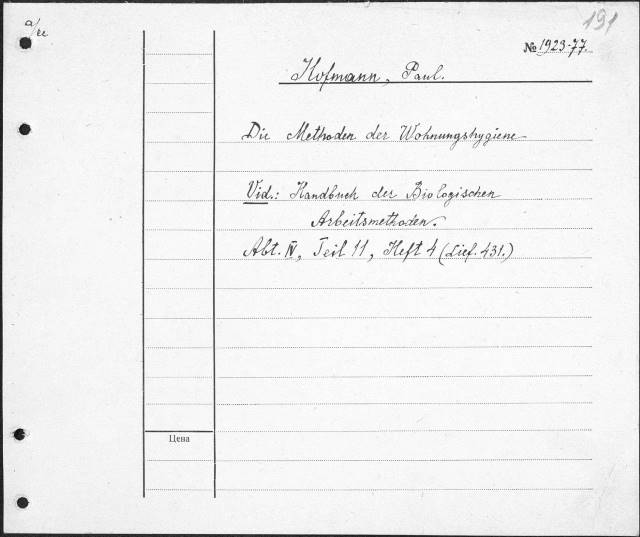 a/ee
191
№ 1923-77.
Hofmann, Paul.
Die Methoden der Wohnungshygiene
Vid.: Handbuch der Biologischen
Arbeitsmethoden.
Abt. IV, Teil 11, Heft 4 (Lief. 431.)
Цена